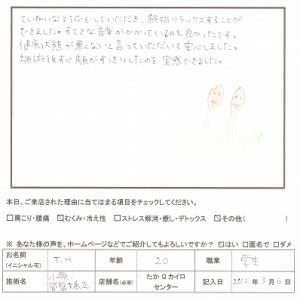 ていねいな対応をしていただき、終始リラックスすることが
できました。すてきな音楽がかかっているのも良かったです。
健康状態が悪くないと言っていただいて安心しました。
施術後すぐ顔がすっきりしたのを実感できました。
本日、ご来店された理由に当てはまる項目をチェックしてください。
□肩こり・腰痛 ☑むくみ・冷え性 □ストレス解消・癒し・デトックス ☑その他( )
※ あなた様の声を、ホームページなどでご紹介してもよろしいですか? ☑はい □匿名で □ダメ
お名前 (イニシャル可) T.H 年齢 20 職業 学生
施術名 小顔 骨盤矯正 店舗名(必須) たかQカイロセンター 記入日 2012年3月6日